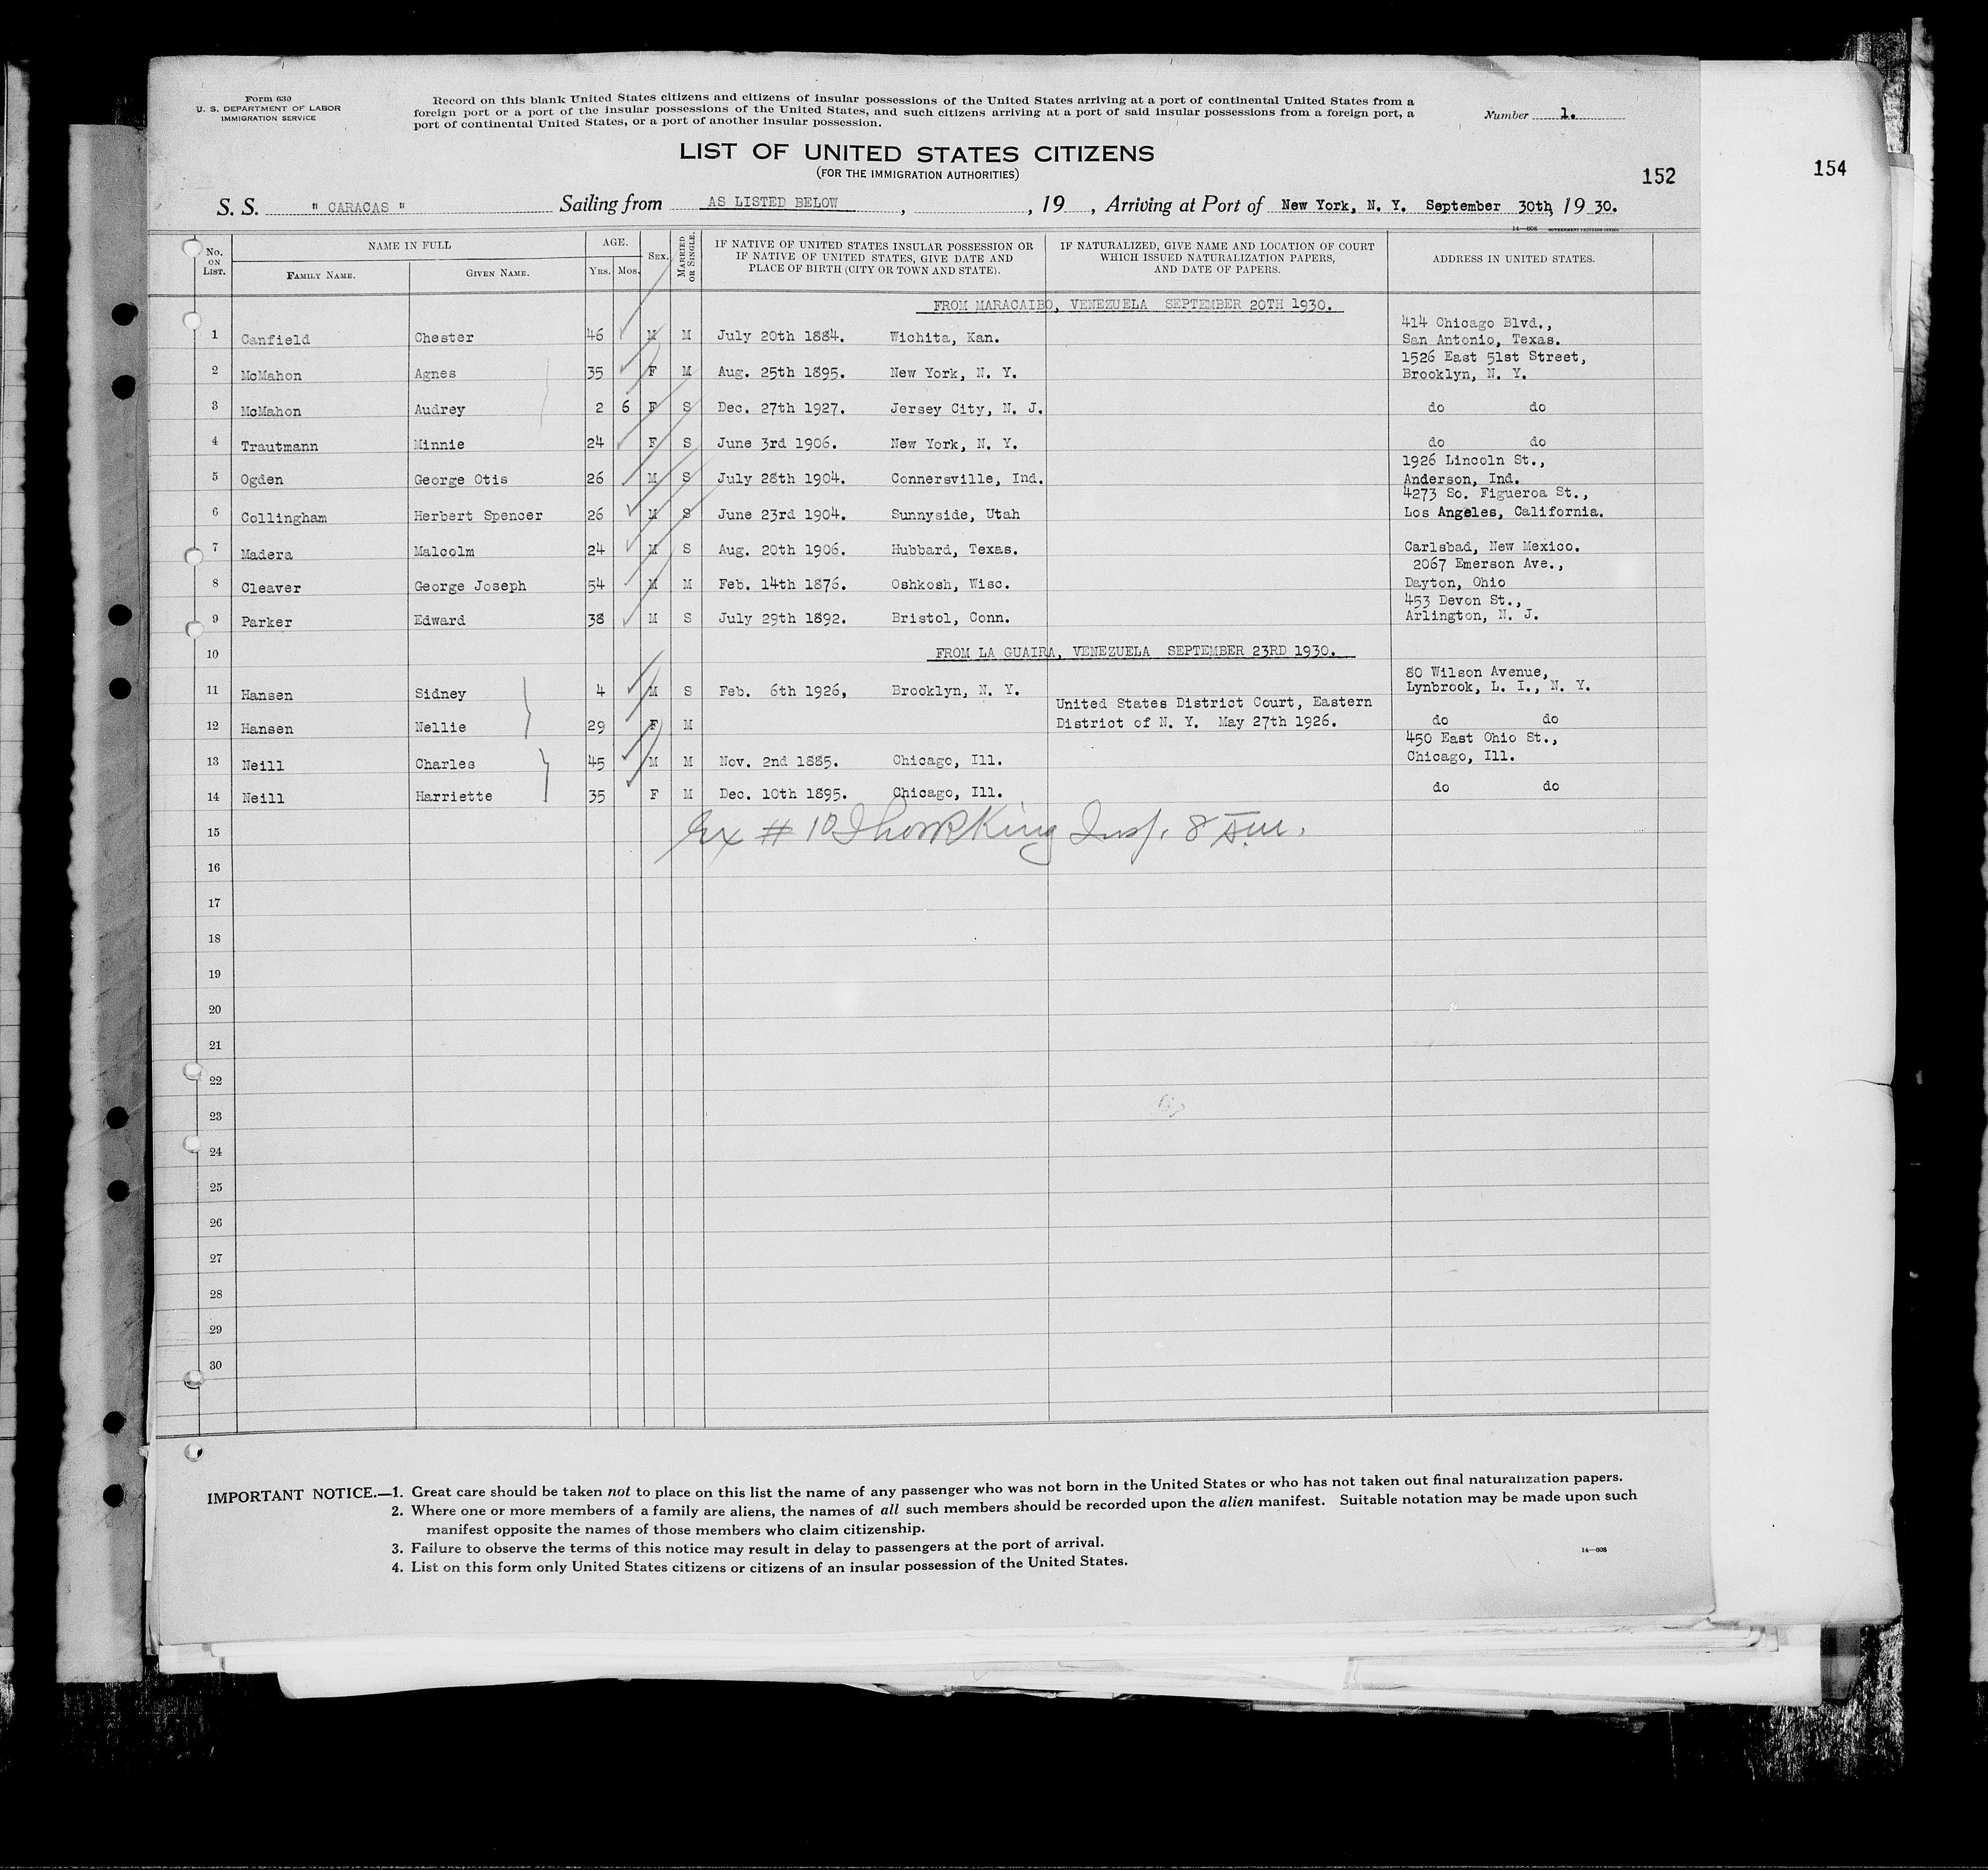 Form 630
U. S. DEPARTMENT OF LABOR
IMMIGRATION SERVICE
Record on this blank United States citizens and citizens of insular possessions of the United States arriving at a port of continental United States from a
foreign port or a port of the insular possessions of the United States, and such citizens arriving at a port of said insular possessions from a foreign port, a
port of continental United States, or a port of another insular possession.
Number 1.
LIST OF UNITED STATES CITIZENS
(FOR THE IMMIGRATION AUTHORITIES)
152
154
S. S. " CARACAS " Sailing from AS LISTED BELOW , , 19 , Arriving at Port of New York, N. Y. September 30th, 1930.
14—608 GOVERNMENT PRINTING OFFICE
No. ON LIST. NAME IN FULL AGE. SEX. MARRIED OR SINGLE. IF NATIVE OF UNITED STATES INSULAR POSSESSION OR IF NATIVE OF UNITED STATES, GIVE DATE AND PLACE OF BIRTH (CITY OR TOWN AND STATE). IF NATURALIZED, GIVE NAME AND LOCATION OF COURT WHICH ISSUED NATURALIZATION PAPERS, AND DATE OF PAPERS. ADDRESS IN UNITED STATES.
FAMILY NAME. GIVEN NAME. YRS. MOS.
FROM MARACAIBO, VENEZUELA SEPTEMBER 20TH 1930.
1 Canfield Chester 46 M M July 20th 1884. Wichita, Kan. 414 Chicago Blvd., San Antonio, Texas.
2 McMahon Agnes 35 F M Aug. 25th 1895. New York, N. Y. 1526 East 51st Street, Brooklyn, N. Y.
3 McMahon Audrey 2 6 F S Dec. 27th 1927. Jersey City, N. J. do do
4 Trautmann Minnie 24 F S June 3rd 1906. New York, N. Y. do do
5 Ogden George Otis 26 M S July 28th 1904. Connersville, Ind. 1926 Lincoln St., Anderson, Ind.
6 Collingham Herbert Spencer 26 M S June 23rd 1904. Sunnyside, Utah 4273 So. Figueroa St., Los Angeles, California.
7 Madera Malcolm 24 M S Aug. 20th 1906. Hubbard, Texas. Carlsbad, New Mexico.
8 Cleaver George Joseph 54 M M Feb. 14th 1876. Oshkosh, Wisc. 2067 Emerson Ave., Dayton, Ohio
9 Parker Edward 38 M S July 29th 1892. Bristol, Conn. 453 Devon St., Arlington, N. J.
10 FROM LA GUAIRA, VENEZUELA SEPTEMBER 23RD 1930.
11 Hansen Sidney 4 M S Feb. 6th 1926, Brooklyn, N. Y. 80 Wilson Avenue, Lynbrook, L. I., N. Y.
12 Hansen Nellie 29 F M United States District Court, Eastern District of N. Y. May 27th 1926. do do
13 Neill Charles 45 M M Nov. 2nd 1885. Chicago, Ill. 450 East Ohio St., Chicago, Ill.
14 Neill Harriette 35 F M Dec. 10th 1895. Chicago, Ill. do do
15 Ex # 10 King Insp. 8 Am.
16
17
18
19
20
21
22
23
24
25
26
27
28
29
30
IMPORTANT NOTICE.—1. Great care should be taken not to place on this list the name of any passenger who was not born in the United States or who has not taken out final naturalization papers.
2. Where one or more members of a family are aliens, the names of all such members should be recorded upon the alien manifest. Suitable notation may be made upon such
manifest opposite the names of those members who claim citizenship.
3. Failure to observe the terms of this notice may result in delay to passengers at the port of arrival.
4. List on this form only United States citizens or citizens of an insular possession of the United States.
14—608